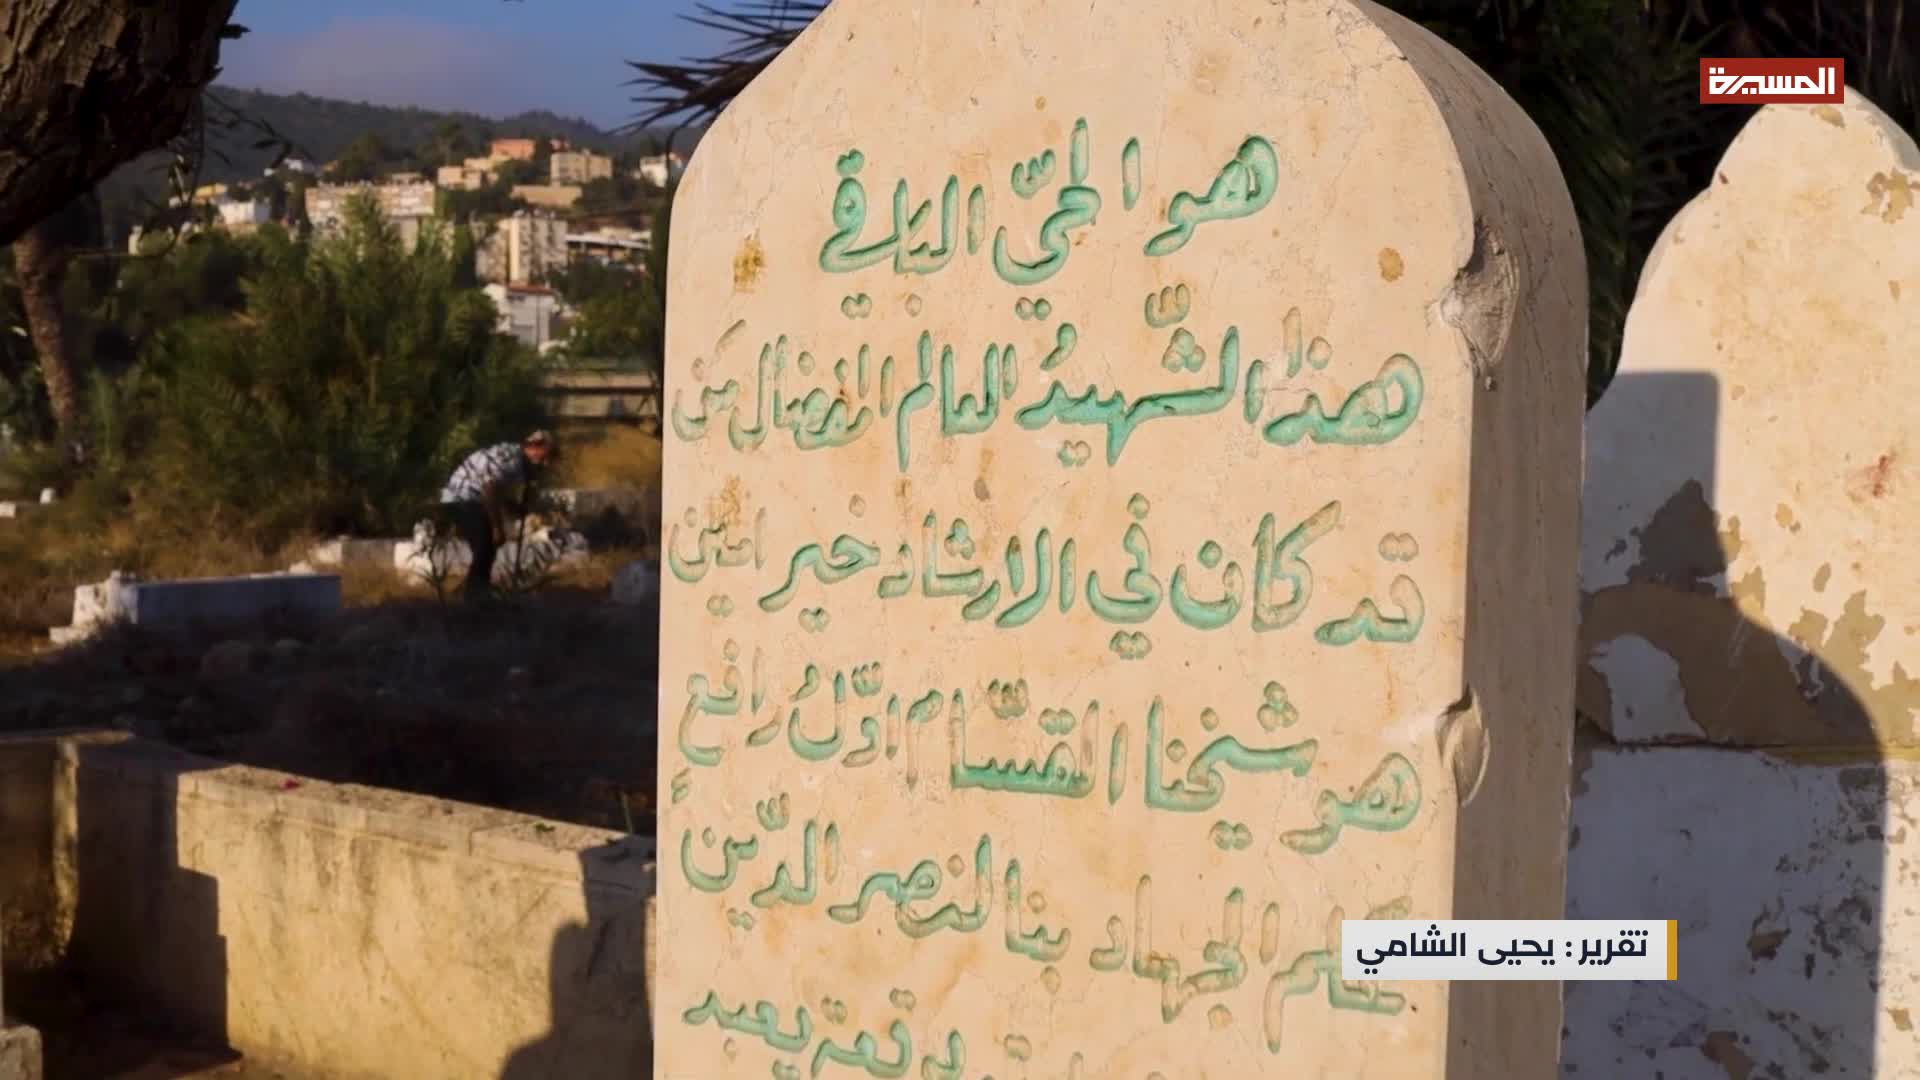 المسيرة
هو الحيّ الباقي
هذا الشّهيدُ العالم المفضال من
قد كان في الارشاد خير امين
هو شيخنا القسّام اوّلُ رافعٍ
علم الجهاد بنا لنصر الدّين
تقرير: يحيى الشامي